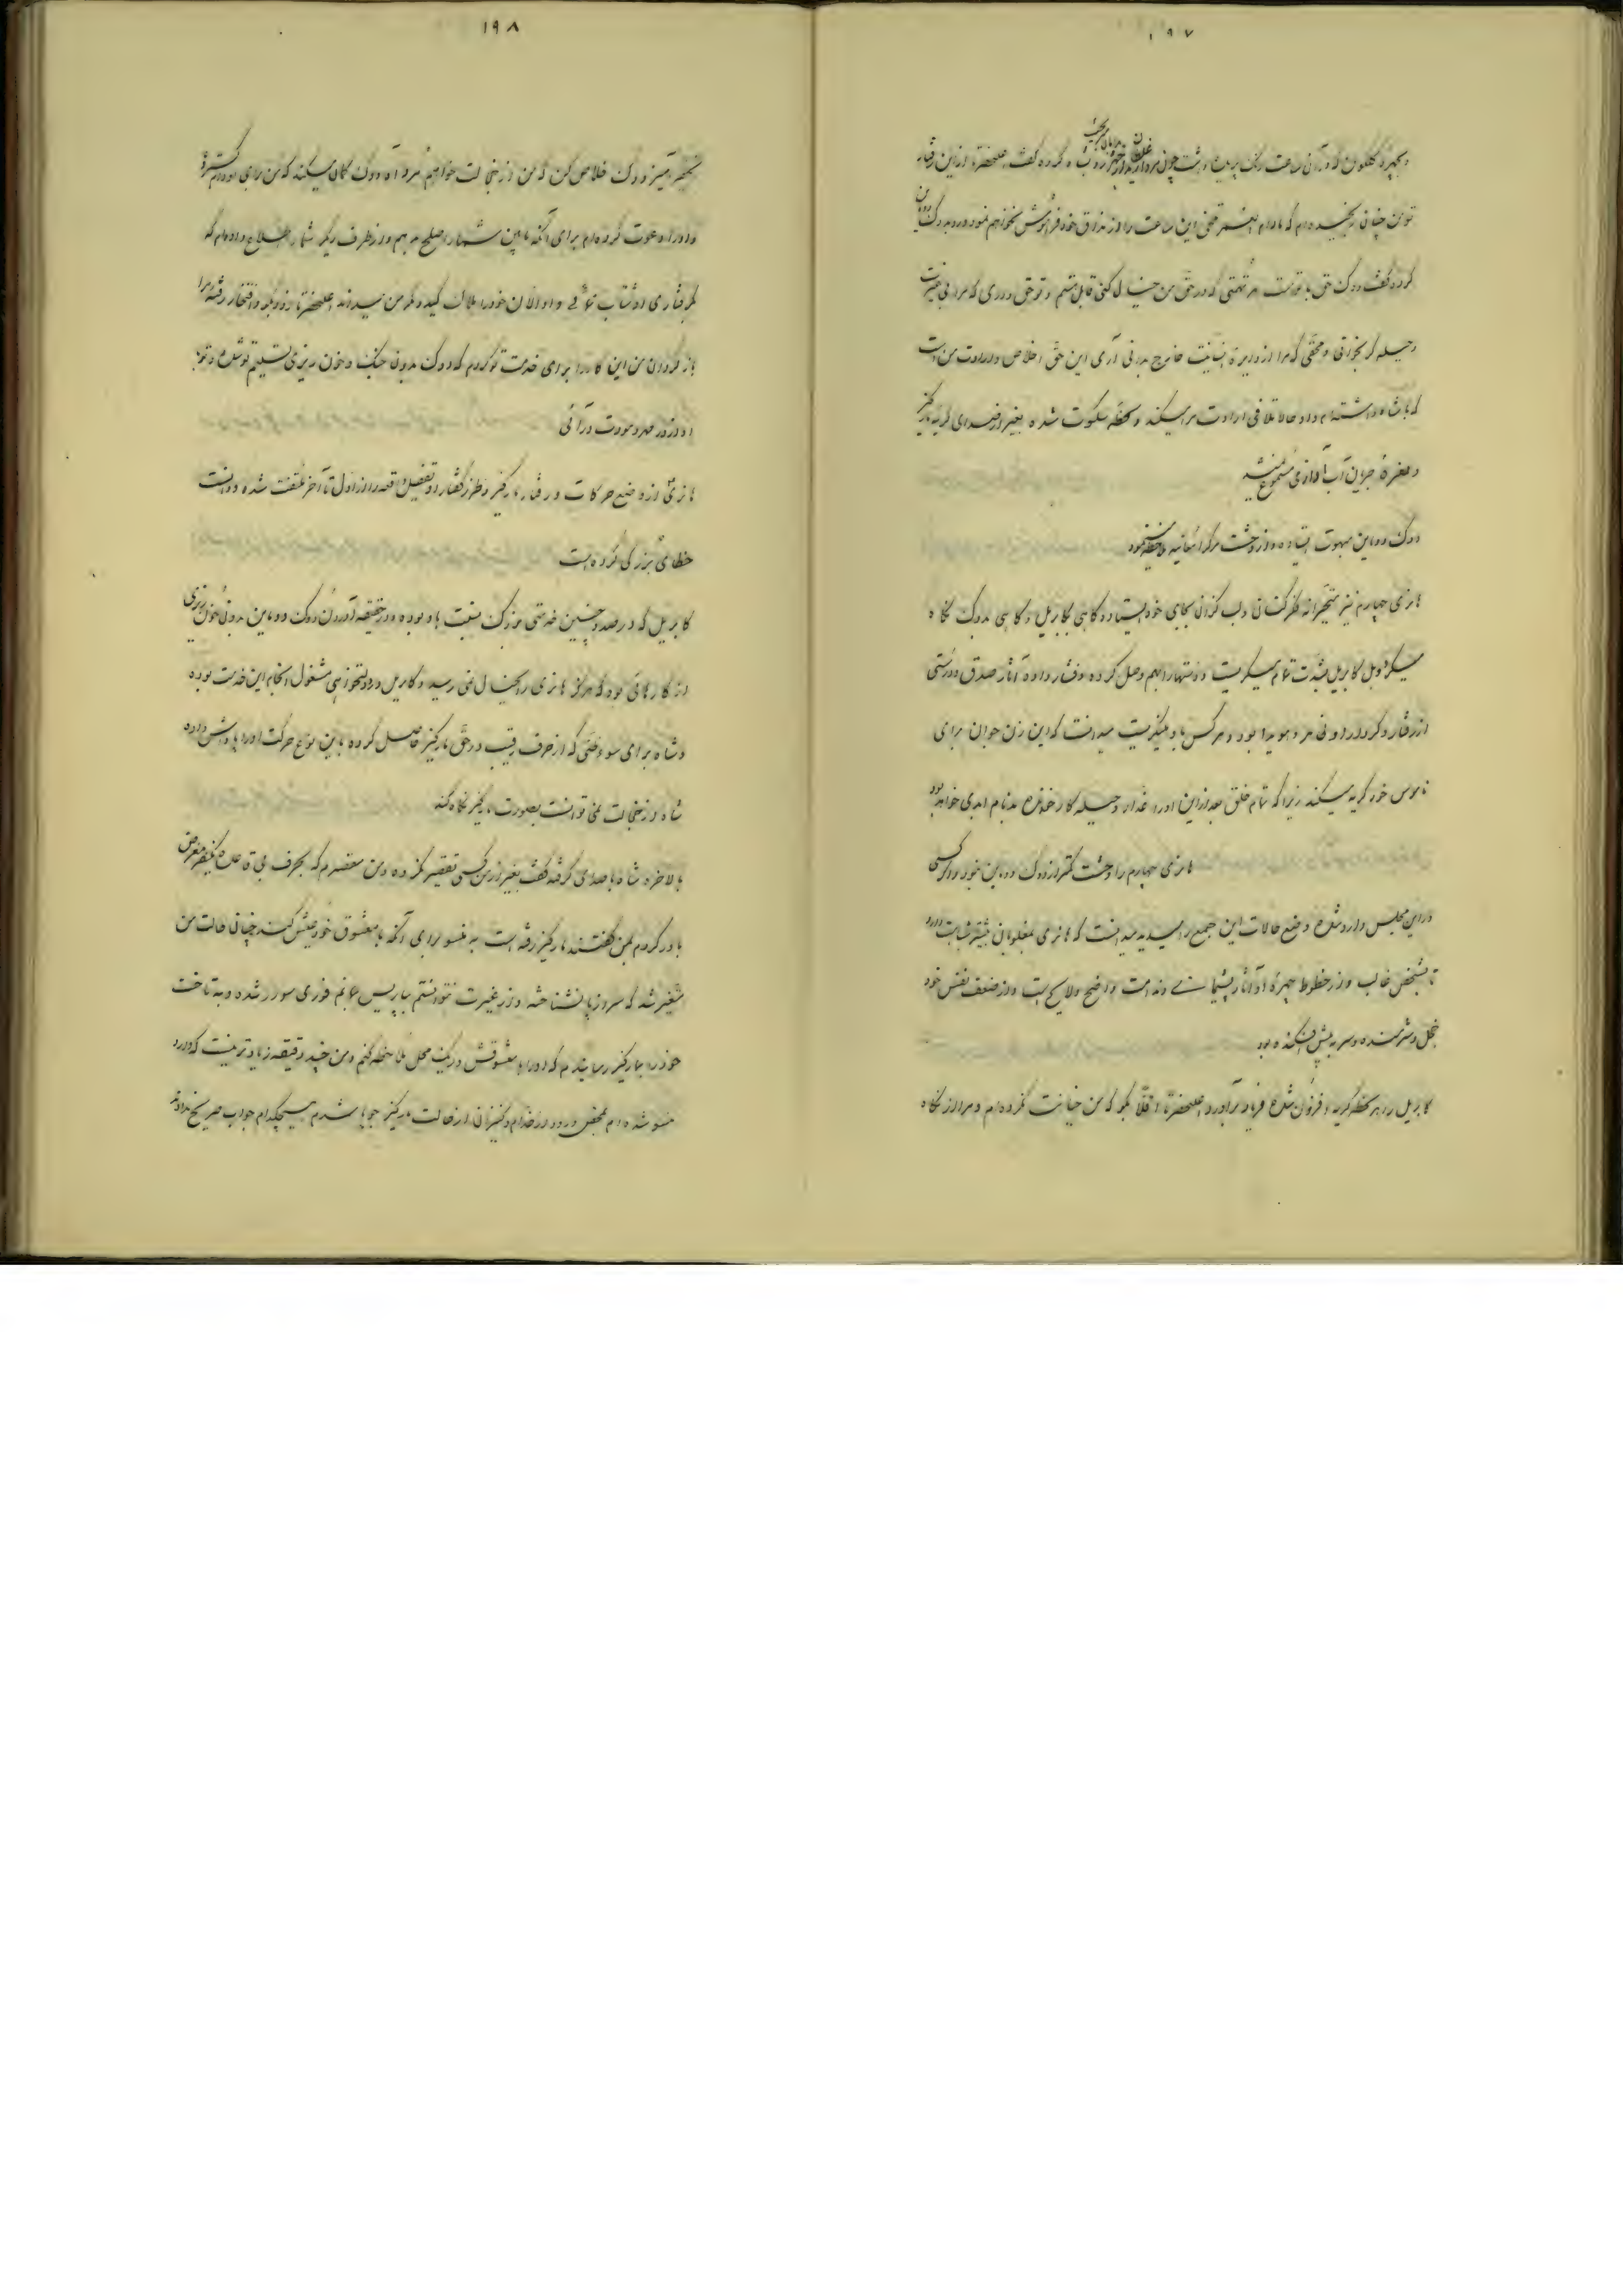 ۱۹۷
توین چنان رنجیده‌ام که مادام العمر تلخی این ساعت را از مذاق خود فراموش نخواهم نمود
کرده گفت دوک حق با تو است هر تهمتی که در حق من خیال کنی قابل هستم و تو حق داری که مرا بی غیرت
و حیله‌گر بخوانی و محقی که مرا از دایره انسانیت خارج بدانی آری این حق اخلاص و ارادت من است
که با شاه داشته‌ام و او حالا تلافی ارادت مرا میکند و لحظه سکوت شده بغیر از صدای گریه مارکیز
و جریان آب آوازی مسموع نمیشد
دوک دوماین مبهوت ایستاده و از وحشت مرگ را معاینه ملاحظه مینمود
هانری چهارم نیز متحیرانه نظر کنان و لب گزان بجای خود ایستاده گاهی بگابریل و گاهی بدوک نگاه
میکرد ولی گابریل بشدت تمام میگریست و دستها را بهم وصل کرده و فشار داده آثار صدق و درستی
از رفتار و کردار او ظاهر و هویدا بود و هر کس باو مینگریست میدانست که این زن جوان برای
ناموس خود گریه میکند زیرا که تمام خلق بعد از این او را غدار و حیله کار خوانده بدنام ابدی خواهد بود
هانری چهارم را وحشت کمتر از دوک دوماین نبود و اگر کسی
در این مجلس وارد شده وضع حالات این جمع را میدید میدانست که هانری بمغلوبان بیشتر شباهت دارد
تا بشخص غالب و از خطوط چهره او آثار پشیمانی و ندامت واضح و لایح است و از ضعف نفس خود
خجل و شرمنده و سر به پیش افکنده بود
گابریل را هر لحظه گریه افزون شده فریاد برآورد اعلیحضرتا اقلا بگو که من خیانت نکرده‌ام و مرا از نگاه
۱۹۸
تحقیر آمیز دوک خلاص کن که من از خجالت خواهم مرد آه دوک گمان میکند که من برای او دام گسترده
و او را دعوت کرده‌ام برای آنکه مابین شما را صلح دهم و از طرف دیگر شما را اطلاع داده‌ام که
گرفتاری او شتاب نمائی و او الان خود را هلاک کند و مگر من میدانم اعلیحضرتا زود بگو و افتخار رفته مرا
باز گردان من این کار را برای خدمت تو کردم که دوک بدون جنگ و خون ریزی تسلیم تو شده و تو با
او از در مهر و مودت درآئی
هانری از وضع حرکات و رفتار مارکیز و طرز گفتار او تفصیل واقعه را از اول تا آخر ملتفت شده و دانست
خطای بزرگی کرده است
گابریل که در صدد چنین خدمتی بزرگ نسبت باو بوده و در حقیقت آوردن دوک دوماین بدون خون ریزی
از کارهائی بود که هرگز هانری را بخیال نمی رسید و گابریل در دولتخواهی مشغول انجام این خدمت بوده
و شاه برای سوء ظنی که از حرف رقیب در حق مارکیز حاصل کرده باین نوع حرکت او را پاداش داده
شاه از خجالت نمی توانست بصورت مارکیز نگاه کند
بالاخره شاه با صدای گرفته گفت بغیر از من کسی تقصیر نکرده و من مقصرم که بحرف بی قاعده یکنفر مغرض
باور کردم بمن گفتند مارکیز رفته است به منسو برای آنکه با معشوق خود عیش کند چنان حالت من
متغیر شد که سر از پا نشناخته و از غیرت نتوانستم بپاریس بمانم فوری سوار شده و به تاخت
خود را بمارکیز رسانیدم که او را با معشوقش در یک محل ملاحظه کنم و من چند دقیقه زیادتر نیست که وارد
منسو شده‌ام بمحض ورود از خدام و کنیزان از حالت مارکیز جویا شدم هیچکدام جواب صریح ندادند